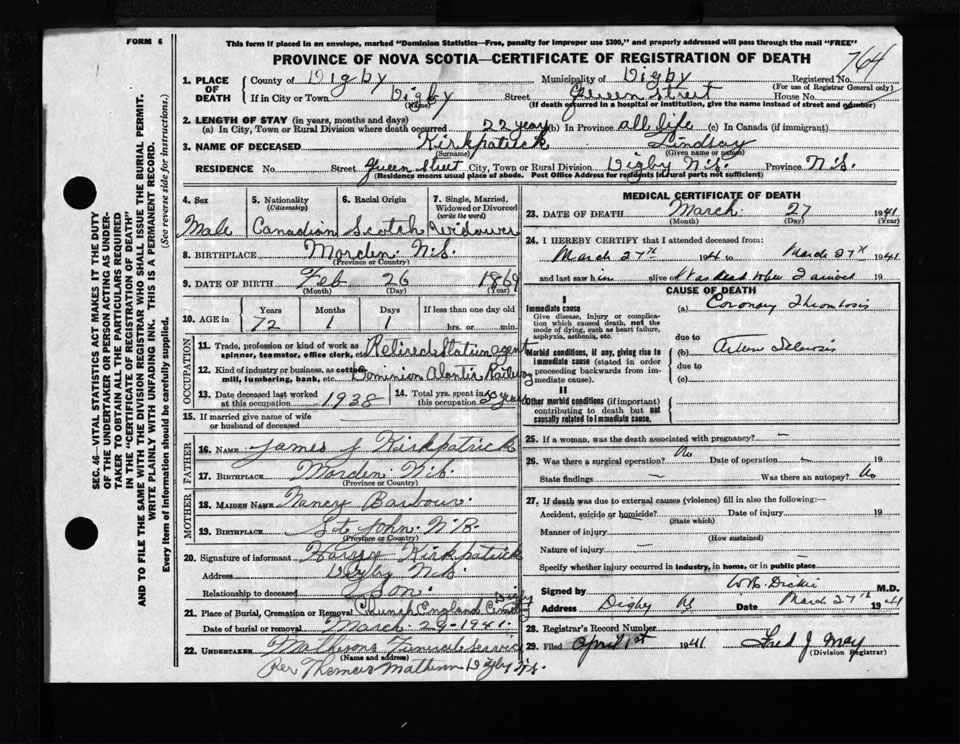 FORM 6
This form if placed in an envelope, marked "Dominion Statistics—Free, penalty for improper use $300," and properly addressed will pass through the mail "FREE"
PROVINCE OF NOVA SCOTIA—CERTIFICATE OF REGISTRATION OF DEATH
764
1. PLACE OF DEATH
County of Digby Municipality of Digby Registered No.
(For use of Registrar General only)
If in City or Town Digby Street Queen Street House No.
(Name) (If death occurred in a hospital or institution, give the name instead of street and number)
2. LENGTH OF STAY (in years, months and days)
(a) In City, Town or Rural Division where death occurred 22 years (b) In Province all life (c) In Canada (if immigrant)
3. NAME OF DECEASED Kirkpatrick Lindsay
(Surname) (Given name or names)
RESIDENCE No. Street Queen Street City, Town or Rural Division Digby N.S. Province N.S.
(Residence means usual place of abode. Post Office Address for residents in rural parts not sufficient)
4. Sex 5. Nationality (Citizenship) 6. Racial Origin 7. Single, Married, Widowed or Divorced (write the word)
Male Canadian Scotch Widower
8. BIRTHPLACE Morden N.S.
(Province or Country)
9. DATE OF BIRTH Feb 26 1869
(Month) (Day) (Year)
10. AGE in Years Months Days If less than one day old
72 1 1 hrs. or min.
OCCUPATION
11. Trade, profession or kind of work as spinner, teamster, office clerk, etc. Retired Station agent
12. Kind of industry or business, as cotton mill, lumbering, bank, etc. Dominion Atlantic Railway
13. Date deceased last worked at this occupation 1938 14. Total yrs. spent in this occupation years
15. If married give name of wife or husband of deceased
FATHER
16. NAME James J Kirkpatrick
17. BIRTHPLACE Morden N.S.
(Province or Country)
MOTHER
18. MAIDEN NAME Nancy Barbour
19. BIRTHPLACE St John N.B.
(Province or Country)
20. Signature of informant Kirkpatrick
Address Digby N.S.
Relationship to deceased Son
21. Place of Burial, Cremation or Removal Church England Digby
Date of burial or removal March 29 - 1941.
22. UNDERTAKER Mathesons Funeral Service
(Name and address)
Per Thomas Digby N.S.
MEDICAL CERTIFICATE OF DEATH
23. DATE OF DEATH March 27 1941
(Month) (Day) (Year)
24. I HEREBY CERTIFY that I attended deceased from:
March 27th 1941 to March 27th 1941
and last saw him alive on was dead when I arrived 19
CAUSE OF DEATH
I
Immediate cause
Give disease, injury or complication which caused death, not the mode of dying, such as heart failure, asphyxia, asthenia, etc.
(a) Coronary Thrombosis
due to
Morbid conditions, if any, giving rise to immediate cause (stated in order proceeding backwards from immediate cause).
(b) Arterio Sclerosis
due to
(c)
II
Other morbid conditions (if important) contributing to death but not causally related to immediate cause.
25. If a woman, was the death associated with pregnancy? —
26. Was there a surgical operation? No Date of operation —
State findings — Was there an autopsy? No
27. If death was due to external causes (violence) fill in also the following:—
Accident, suicide or homicide? Date of injury 19
(State which)
Manner of injury
(How sustained)
Nature of injury —
Specify whether injury occurred in industry, in home, or in public place
Signed by W.R. Dickie M.D.
Address Digby NS Date March 27th 1941
28. Registrar's Record Number
29. Filed April 1st 1941 Fred J. May
(Division Registrar)
SEC. 46—VITAL STATISTICS ACT MAKES IT THE DUTY
OF THE UNDERTAKER OR PERSON ACTING AS UNDER-
TAKER TO OBTAIN ALL THE PARTICULARS REQUIRED
IN THE "CERTIFICATE OF REGISTRATION OF DEATH"
AND TO FILE THE SAME WITH THE DIVISION REGISTRAR WHO SHALL ISSUE THE BURIAL PERMIT.
WRITE PLAINLY WITH UNFADING INK. THIS IS A PERMANENT RECORD.
Every item of information should be carefully supplied. (See reverse side for instructions.)